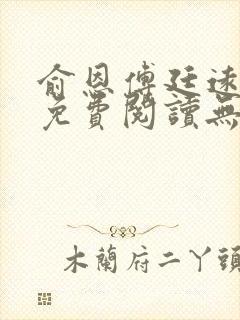 俞恩傅廷遠
免費閱讀無
木蘭府二丫頭